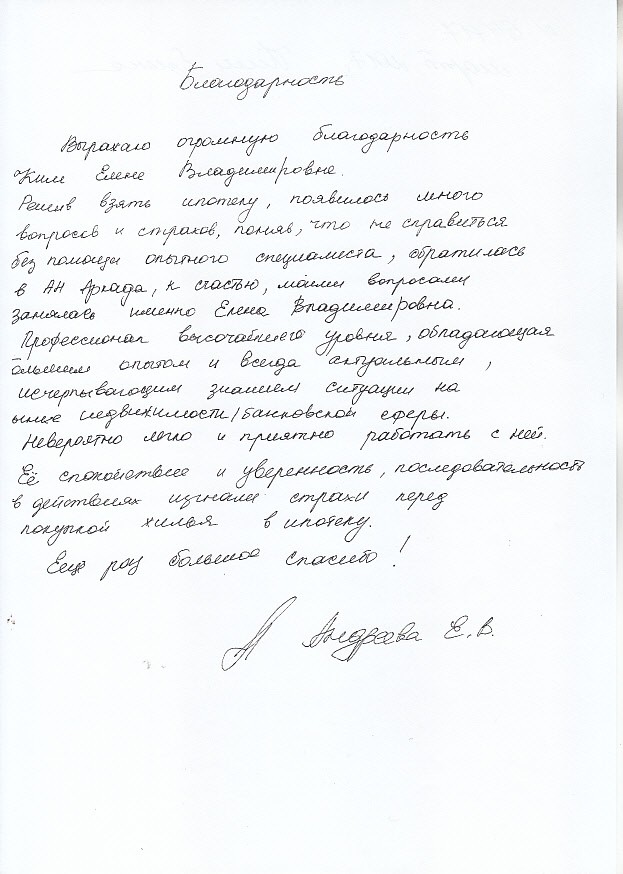 Благодарность
Выражаю огромную благодарность
Ким Елене Владимировне.
Решив взять ипотеку, появилось много
вопросов и страхов, поняв, что не справиться
без помощи опытного специалиста, обратилась
в АН Аркада, к счастью, моими вопросами
занялась именно Елена Владимировна.
Профессионал высочайшего уровня, обладающая
ольшим опытом и всегда актуальным,
исчерпывающим знанием ситуации на
ынке недвижимости/банковской сферы.
Невероятно легко и приятно работать с ней.
Её спокойствие и уверенность, последовательность
в действиях изгнали страхи перед
покупкой жилья в ипотеку.
Еще раз большое спасибо!
Андреева Е.В.